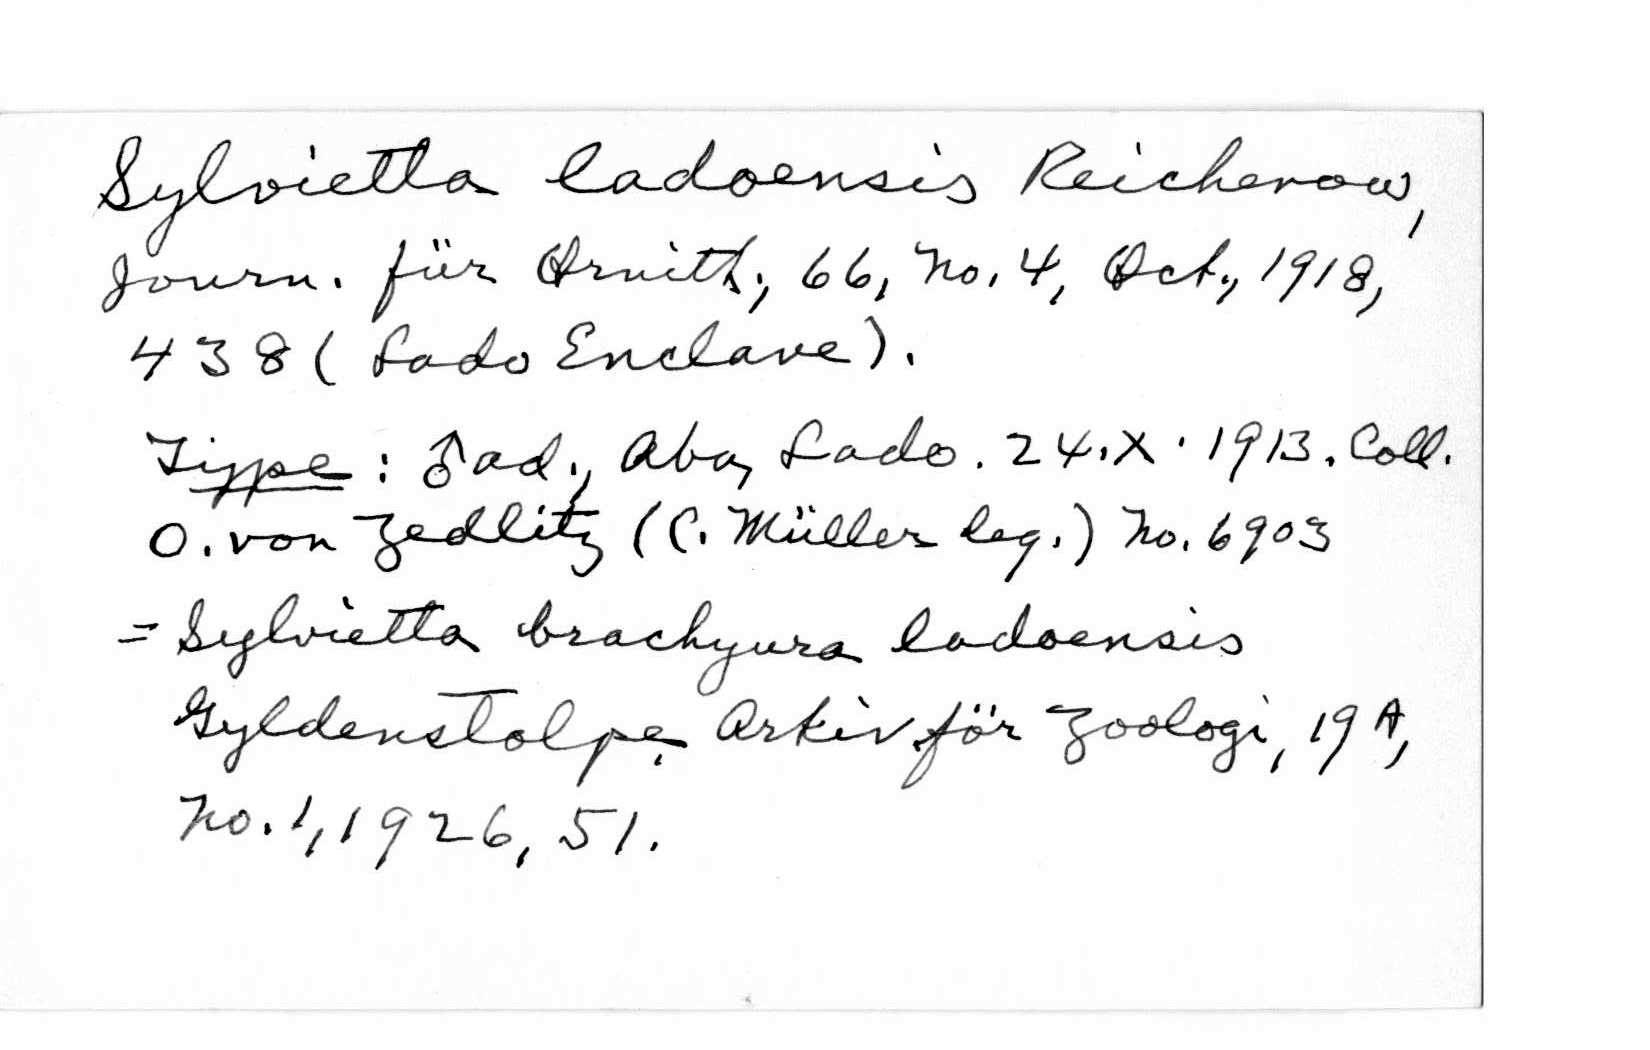 Sylvietta ladoensis Reichenow,
Journ. für Ornith., 66, no. 4, Oct., 1918,
438 (Lado Enclave).
Type: ♂ ad., Aba, Lado. 24.X.1913. Coll.
O. von Zedlitz (C. Müller leg.) no. 6903
= Sylvietta brachyura ladoensis
Gyldenstolpe, Arkiv för Zoologi, 19A,
no. 1, 1926, 51.